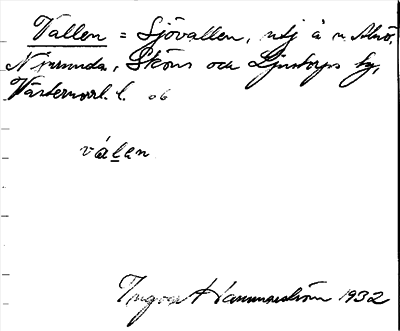 Vallen = Sjövallen, utj å n. Alnö,
Njurunda, Sköns och Ljustorps sn,
Västernorrl. l. ob
válen
Ingvor Hammarström 1932